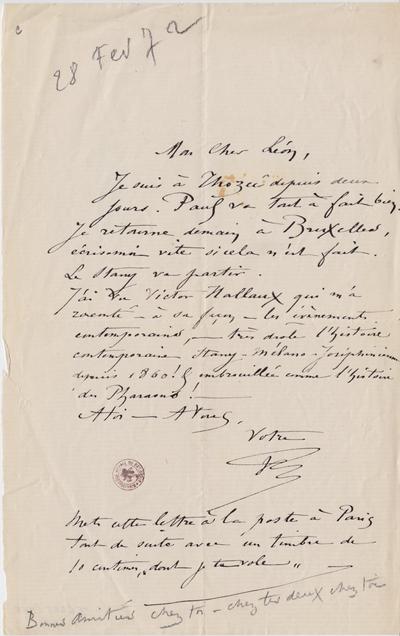 28 Fev 72
Mon Cher Léon,
Je suis à Thozée depuis deux
jours. Paul va tout à fait bien.
Je retourne demain à Bruxelles,
écrismoi vite si cela n'est fait.
Le Stany va partir.
J'ai vu Victor Hallaux qui m'a
raconté – à sa façon – les évènements
contemporains, – très drole l'histoire
contemporaine Stany-Mélano-
depuis 1860! embrouillée comme l'histoire
des Pharaons!
A toi – A vous,
Votre
Mets cette lettre à la poste à Paris
tout de suite avec un timbre de
10 centimes, "dont je te vole"
Bonnes amitiés chez toi – chez tes deux chez toi